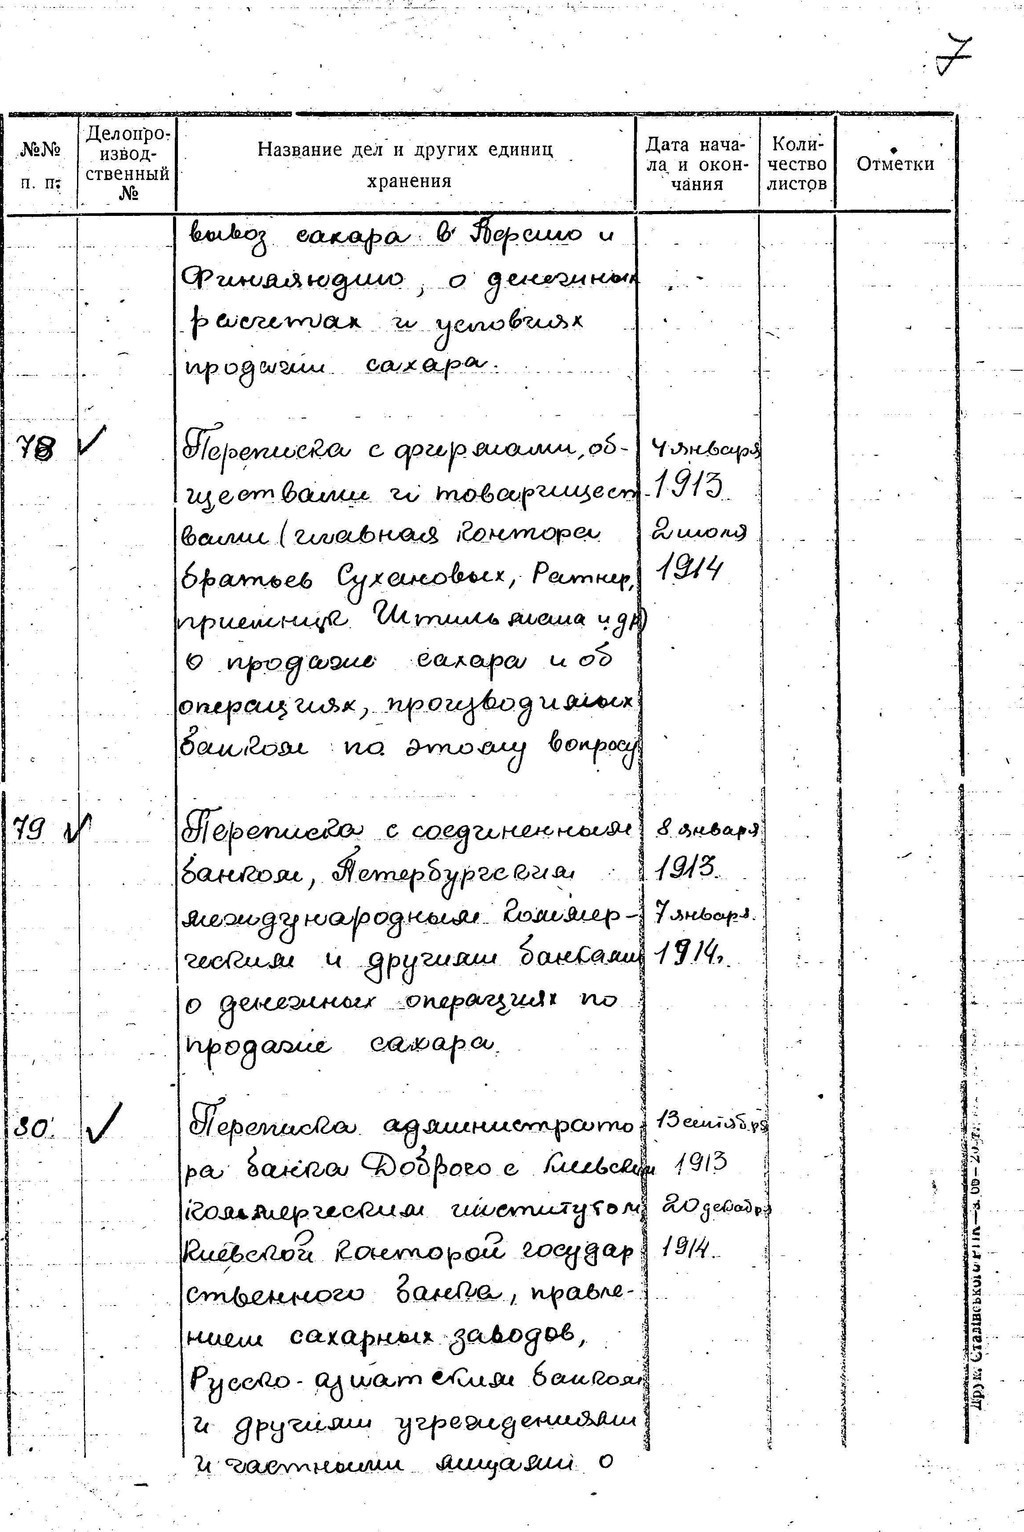 7
№№ п. п.
Делопро-
извод-
ственный
№
Название дел и других единиц
хранения
Дата нача-
ла и окон-
чания
Коли-
чество
листов
Отметки
вывоз сахара в Персию и
Финляндию, о денежных
расчетах и условиях
продажи сахара.
78 ✓ Переписка с фирмами, об- 4 января
ществами и товарищест- 1913
вами (главная контора 2 июля
братьев Сухановых, Ратнер, 1914
приемник Штильмана и др)
о продаже сахара и об
операциях, производимых
банком по этому вопросу
79 ✓ Переписка с соединенным 8 января
банком, Петербургским 1913.
международным коммер- 7 января.
ческим и другими банками 1914.
о денежных операциях по
продаже сахара.
80. ✓ Переписка администрато- 13 сентября
ра банка Доброго с Киевским 1913
коммерческим институтом, 20 декабря
Киевской конторой государ 1914.
ственного банка, правле-
нием сахарных заводов,
Русско-азиатским банком
и другими учреждениями
и частными лицами о
Друк. Сталінського